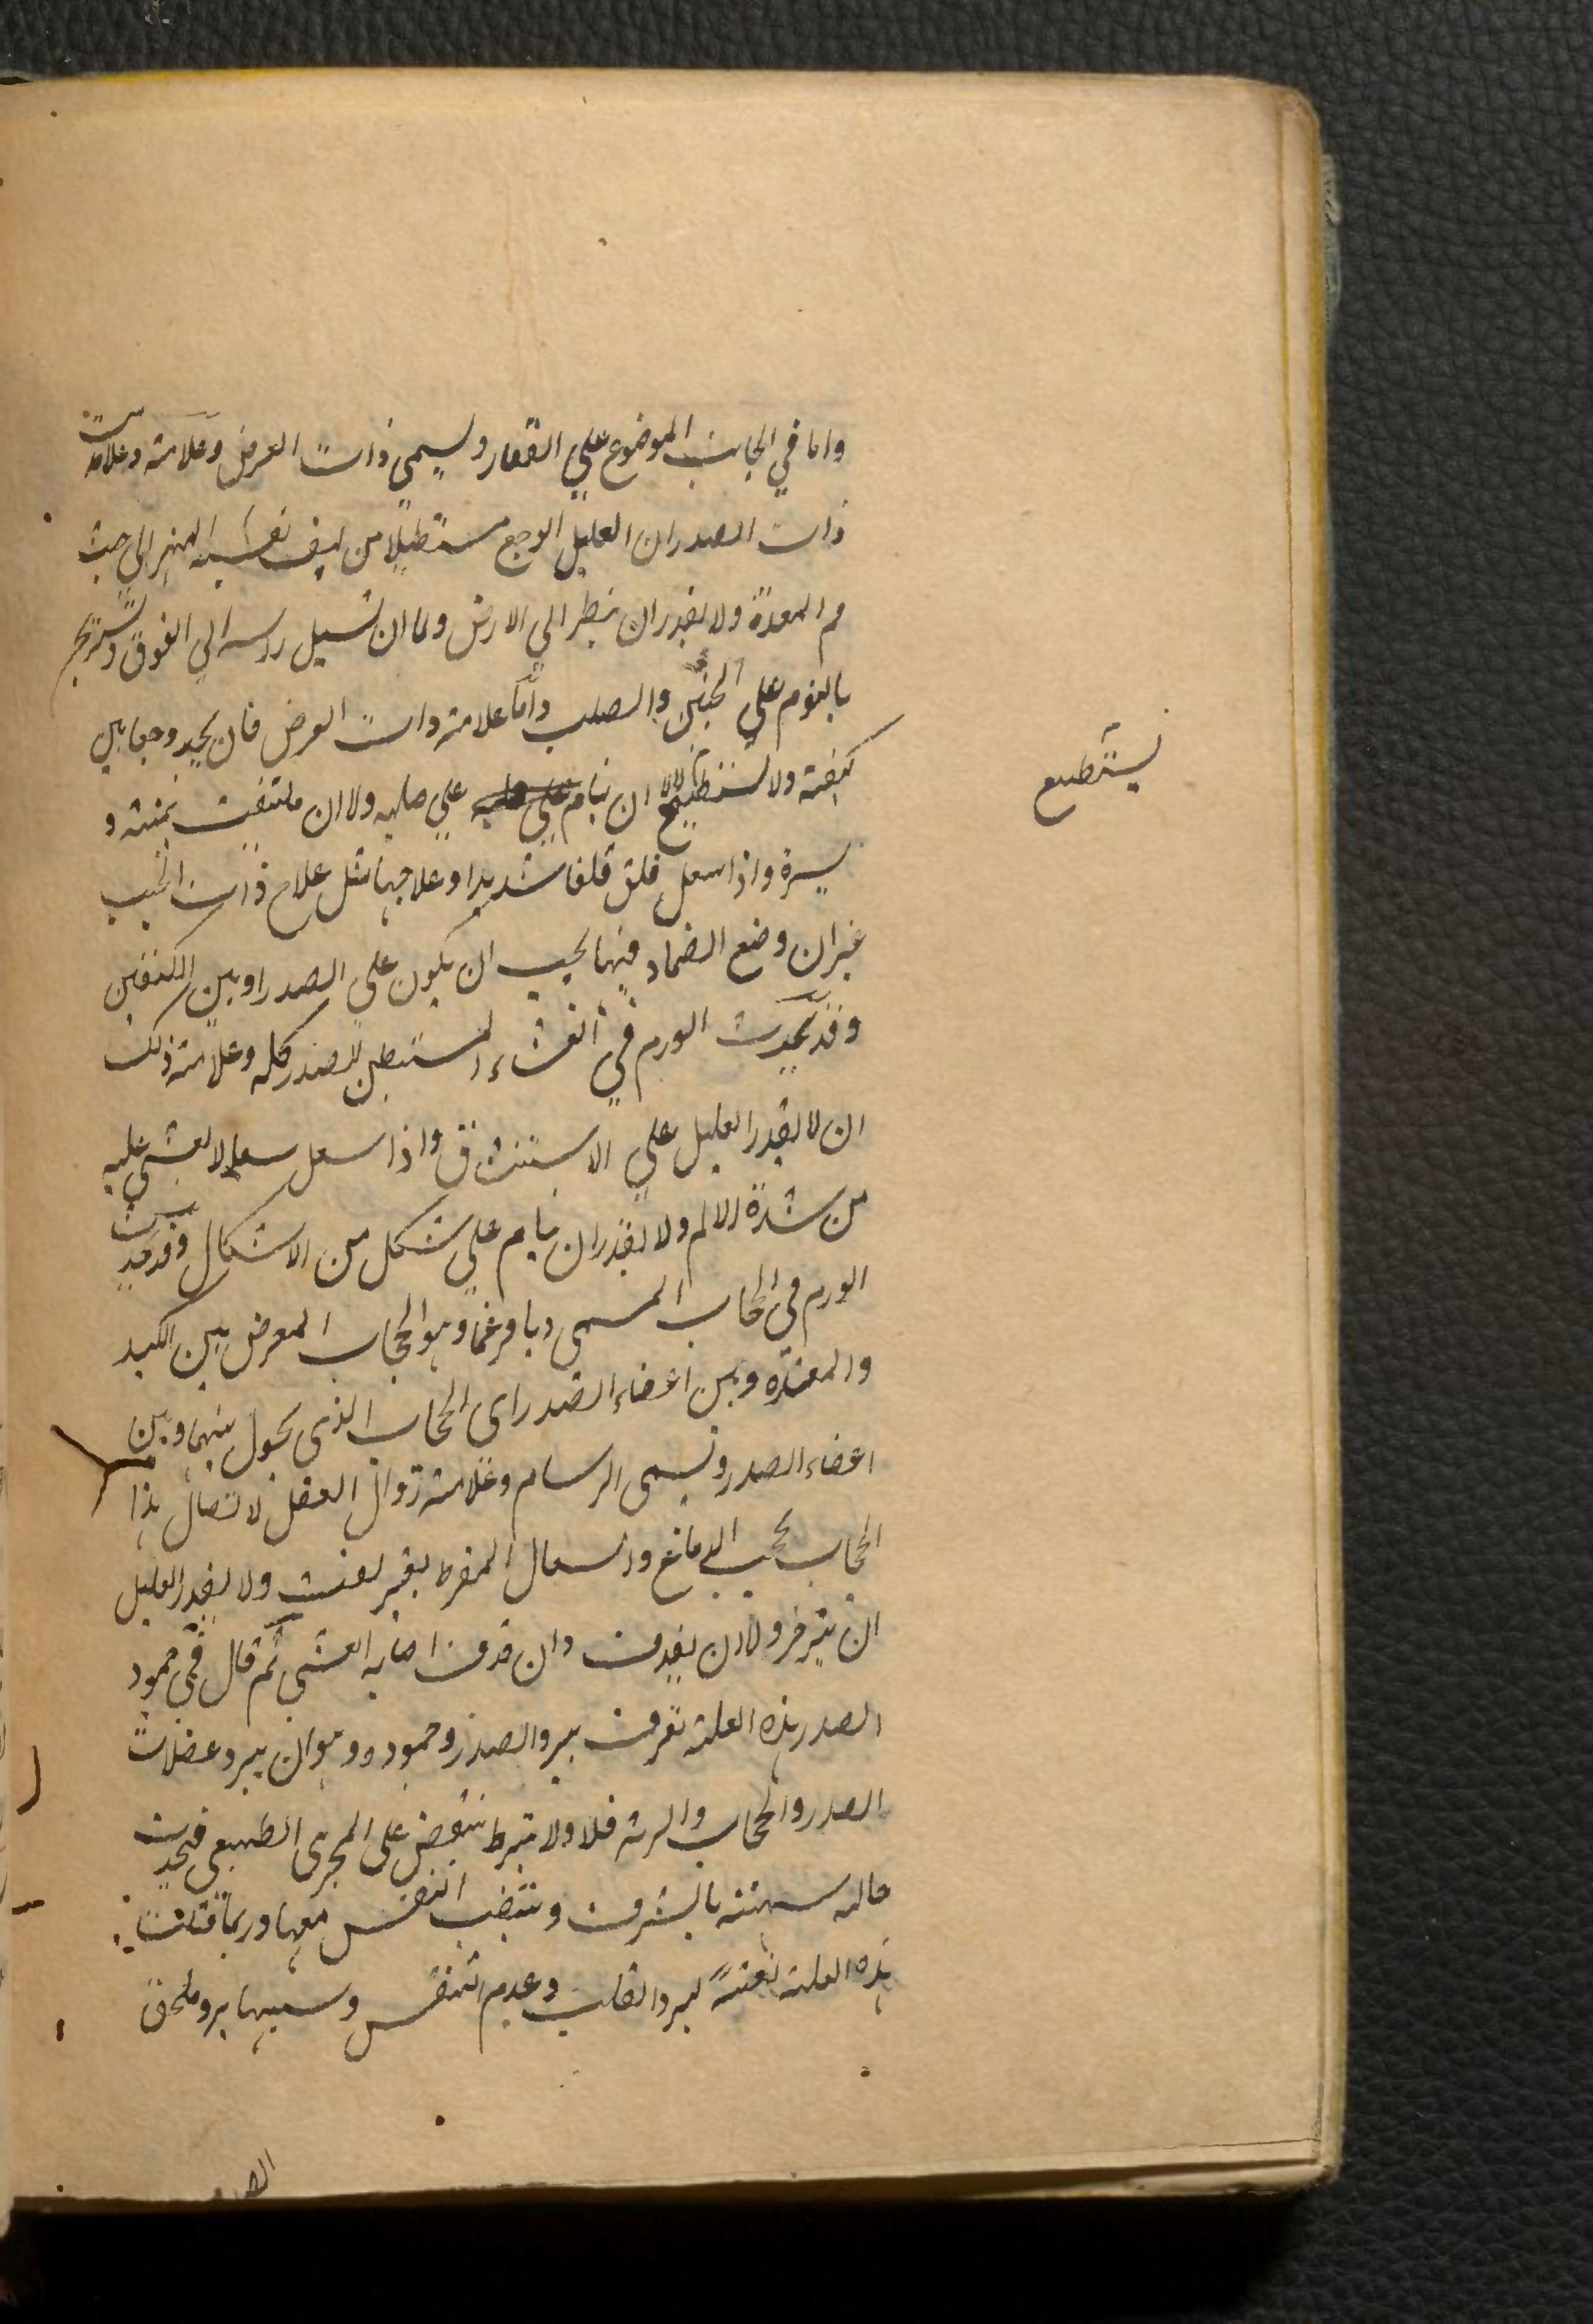 واما في الجانب الموضوع علي الفقار ويسمي ذات العرض وعلامته وعلامة
ذات الصدر ان العليل الوجع مستطيلا من ليف الي حيث
فم المعدة ولا يقدر ان ينظر الي الارض ولا ان يسيل راسه الي الفوق ويستريح
بالنوم علي الجنبين والصلب واما علامة ذات العرض فان يجد وجعا بين
كتفيه ولا يستطيع ان ينام علي صلبه ولا ان يلتفت يمنة و
يستطيع
يسرة واذا سعل قلق قلقا شديدا وعلاجها مثل علاج ذات الجنب
غير ان وضع الضماد فيها يجب ان يكون علي الصدر او بين الكتفين
وقد يحدث الورم في الغشاء المستبطن للصدر كله وعلامة ذلك
ان لا يقدر العليل علي الاستنشاق واذا سعل سعالا يغشي عليه
من شدة الالم ولا يقدر ان ينام علي شكل من الاشكال وقد يحدث
الورم في الحجاب المسمي ديافرغما وهو الحجاب المعرض بين الكبد
والمعدة وبين اعضاء الصدر اي الحجاب الذي يحول بينها وبين
اعضاء الصدر ويسمي البرسام وعلامته زوال العقل لاتصال هذا
الحجاب بحجب الدماغ والسعال المفرط بغير نفث ولا يقدر العليل
ان يتزحر ولا ان يقذف وان قذف اصابه الغشي ثم قال في جمود
الصدر هذه العلة تعرف ببرد الصدر وجموده وهو ان يبرد عضلات
الصدر والحجاب والرئة فلا ولا ينبسط ينقبض علي المجري الطبيعي فيحدث
حالة شبيهة بالشرف وينتصب النفس معها وربما قتلت
هذه العلة بغتة لبرد القلب وعدم التنفس وسببها برد يلحق
الصدر